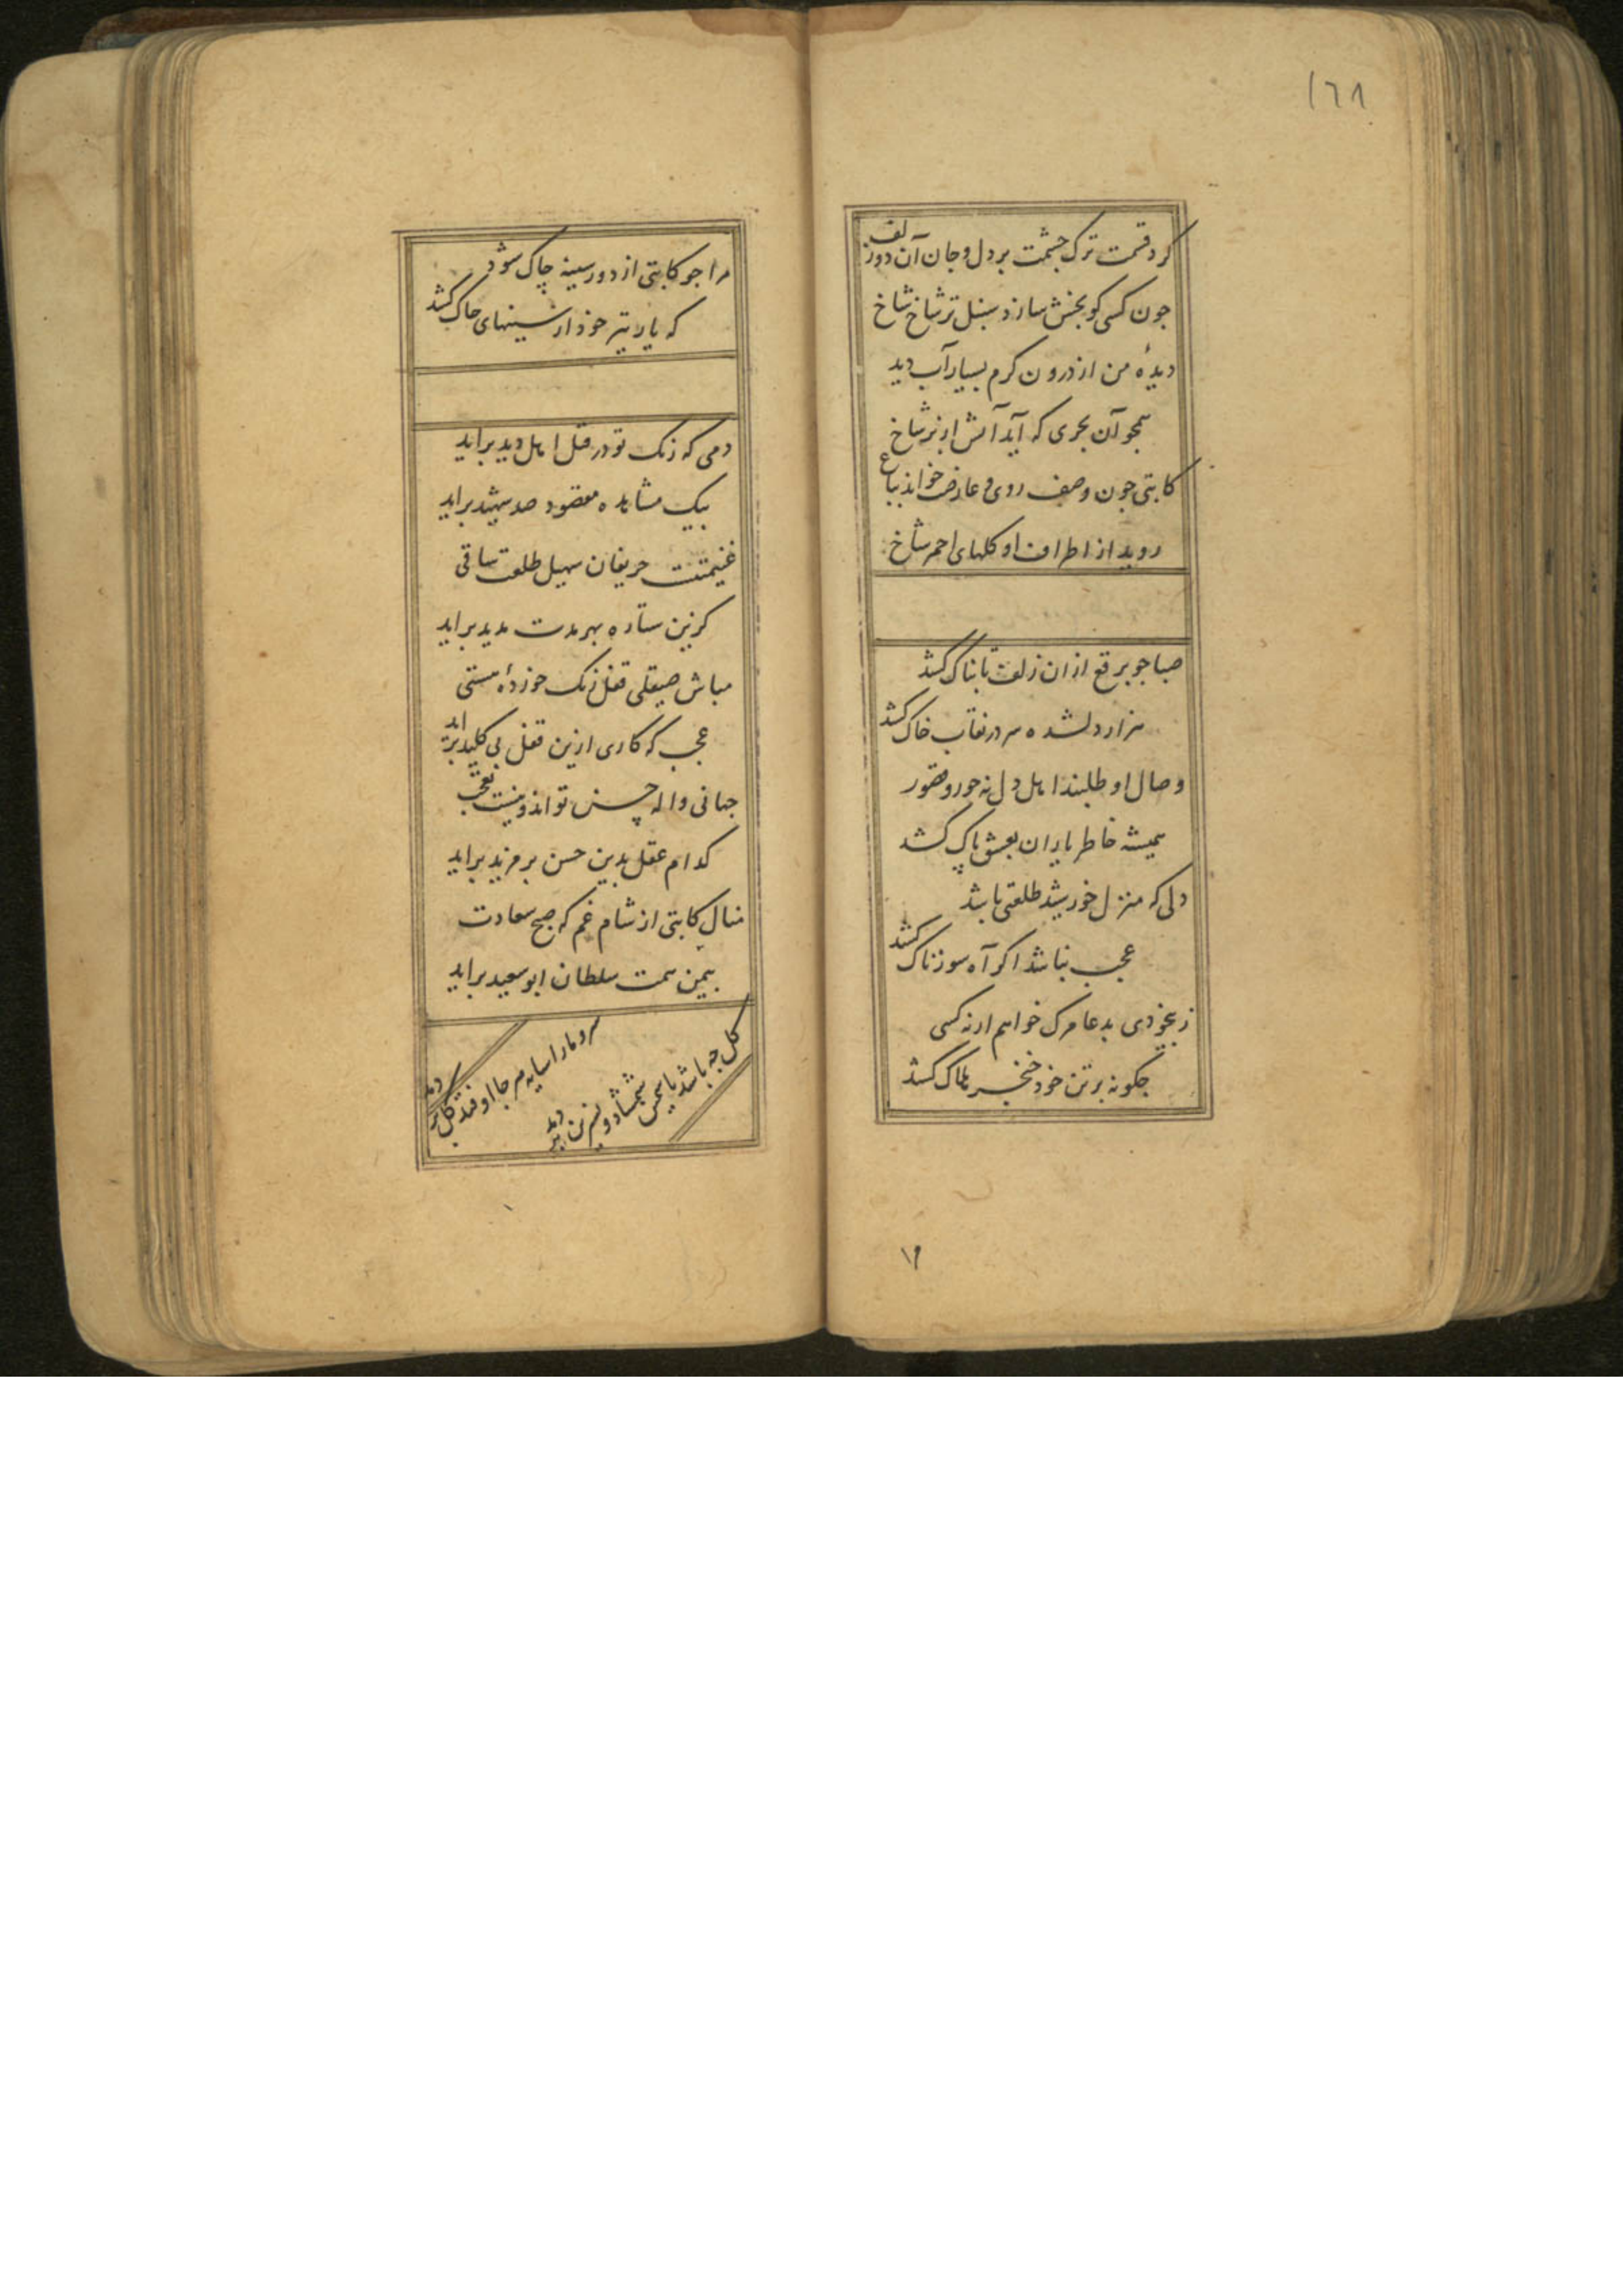 ١٦٨
کرد قسمت ترک چشمت بر دل و جان آن دو زلف
جون کسی کو بخش سازد سنبل تر شاخ شاخ
دیدهٔ من از درون کرم بسیار آب دید
همجو آن بحری که آید آتش از نر شاخ
کاتبی جون وصف روی و عارضت خواند بباغ
روید از اطراف او کلهای احمر شاخ
صبا جو برقع از ان زلف تابناک کشد
هزار دلشده سر در نقاب خاک کشد
وصال او طلبند اهل دل نه حور و قصور
همیشه خاطر یاران بعیش پاک کشد
دلی که منزل خورشید طلعتی باشد
عجب نباشد اکر آه سوزناک کشد
ز بیخودی بدعا مرک خواهم ار نه کسی
جکونه بر تن خود خنجر هلاک کشد
١٩
مرا جو کاتبی از دور سینه چاک شود
که یار تیر خود از سینهای جاک کشد
دمی که ترک تو در قتل اهل دید براید
بیک مشاهده مقصود صد شهید براید
غنیمتست حریفان سهیل طلعت ساقی
کزین ستاره بهر مدت مدید براید
مباش صیقلی قفل زنک خوردهٔ هستی
عجب که کاری ازین قفل بی کلید براید
جهانی واله حسن تواند و نیست تعجب
کدام عقل بدین حسن بر مزید براید
منال کاتبی از شام غم که صبح سعادت
بیمن همت سلطان ابو سعید براید
سرو ما را سایه هر جا اوفتد کل بر دمد
کل جه باشد یاسمن شمشاد و نسرین بر دمد